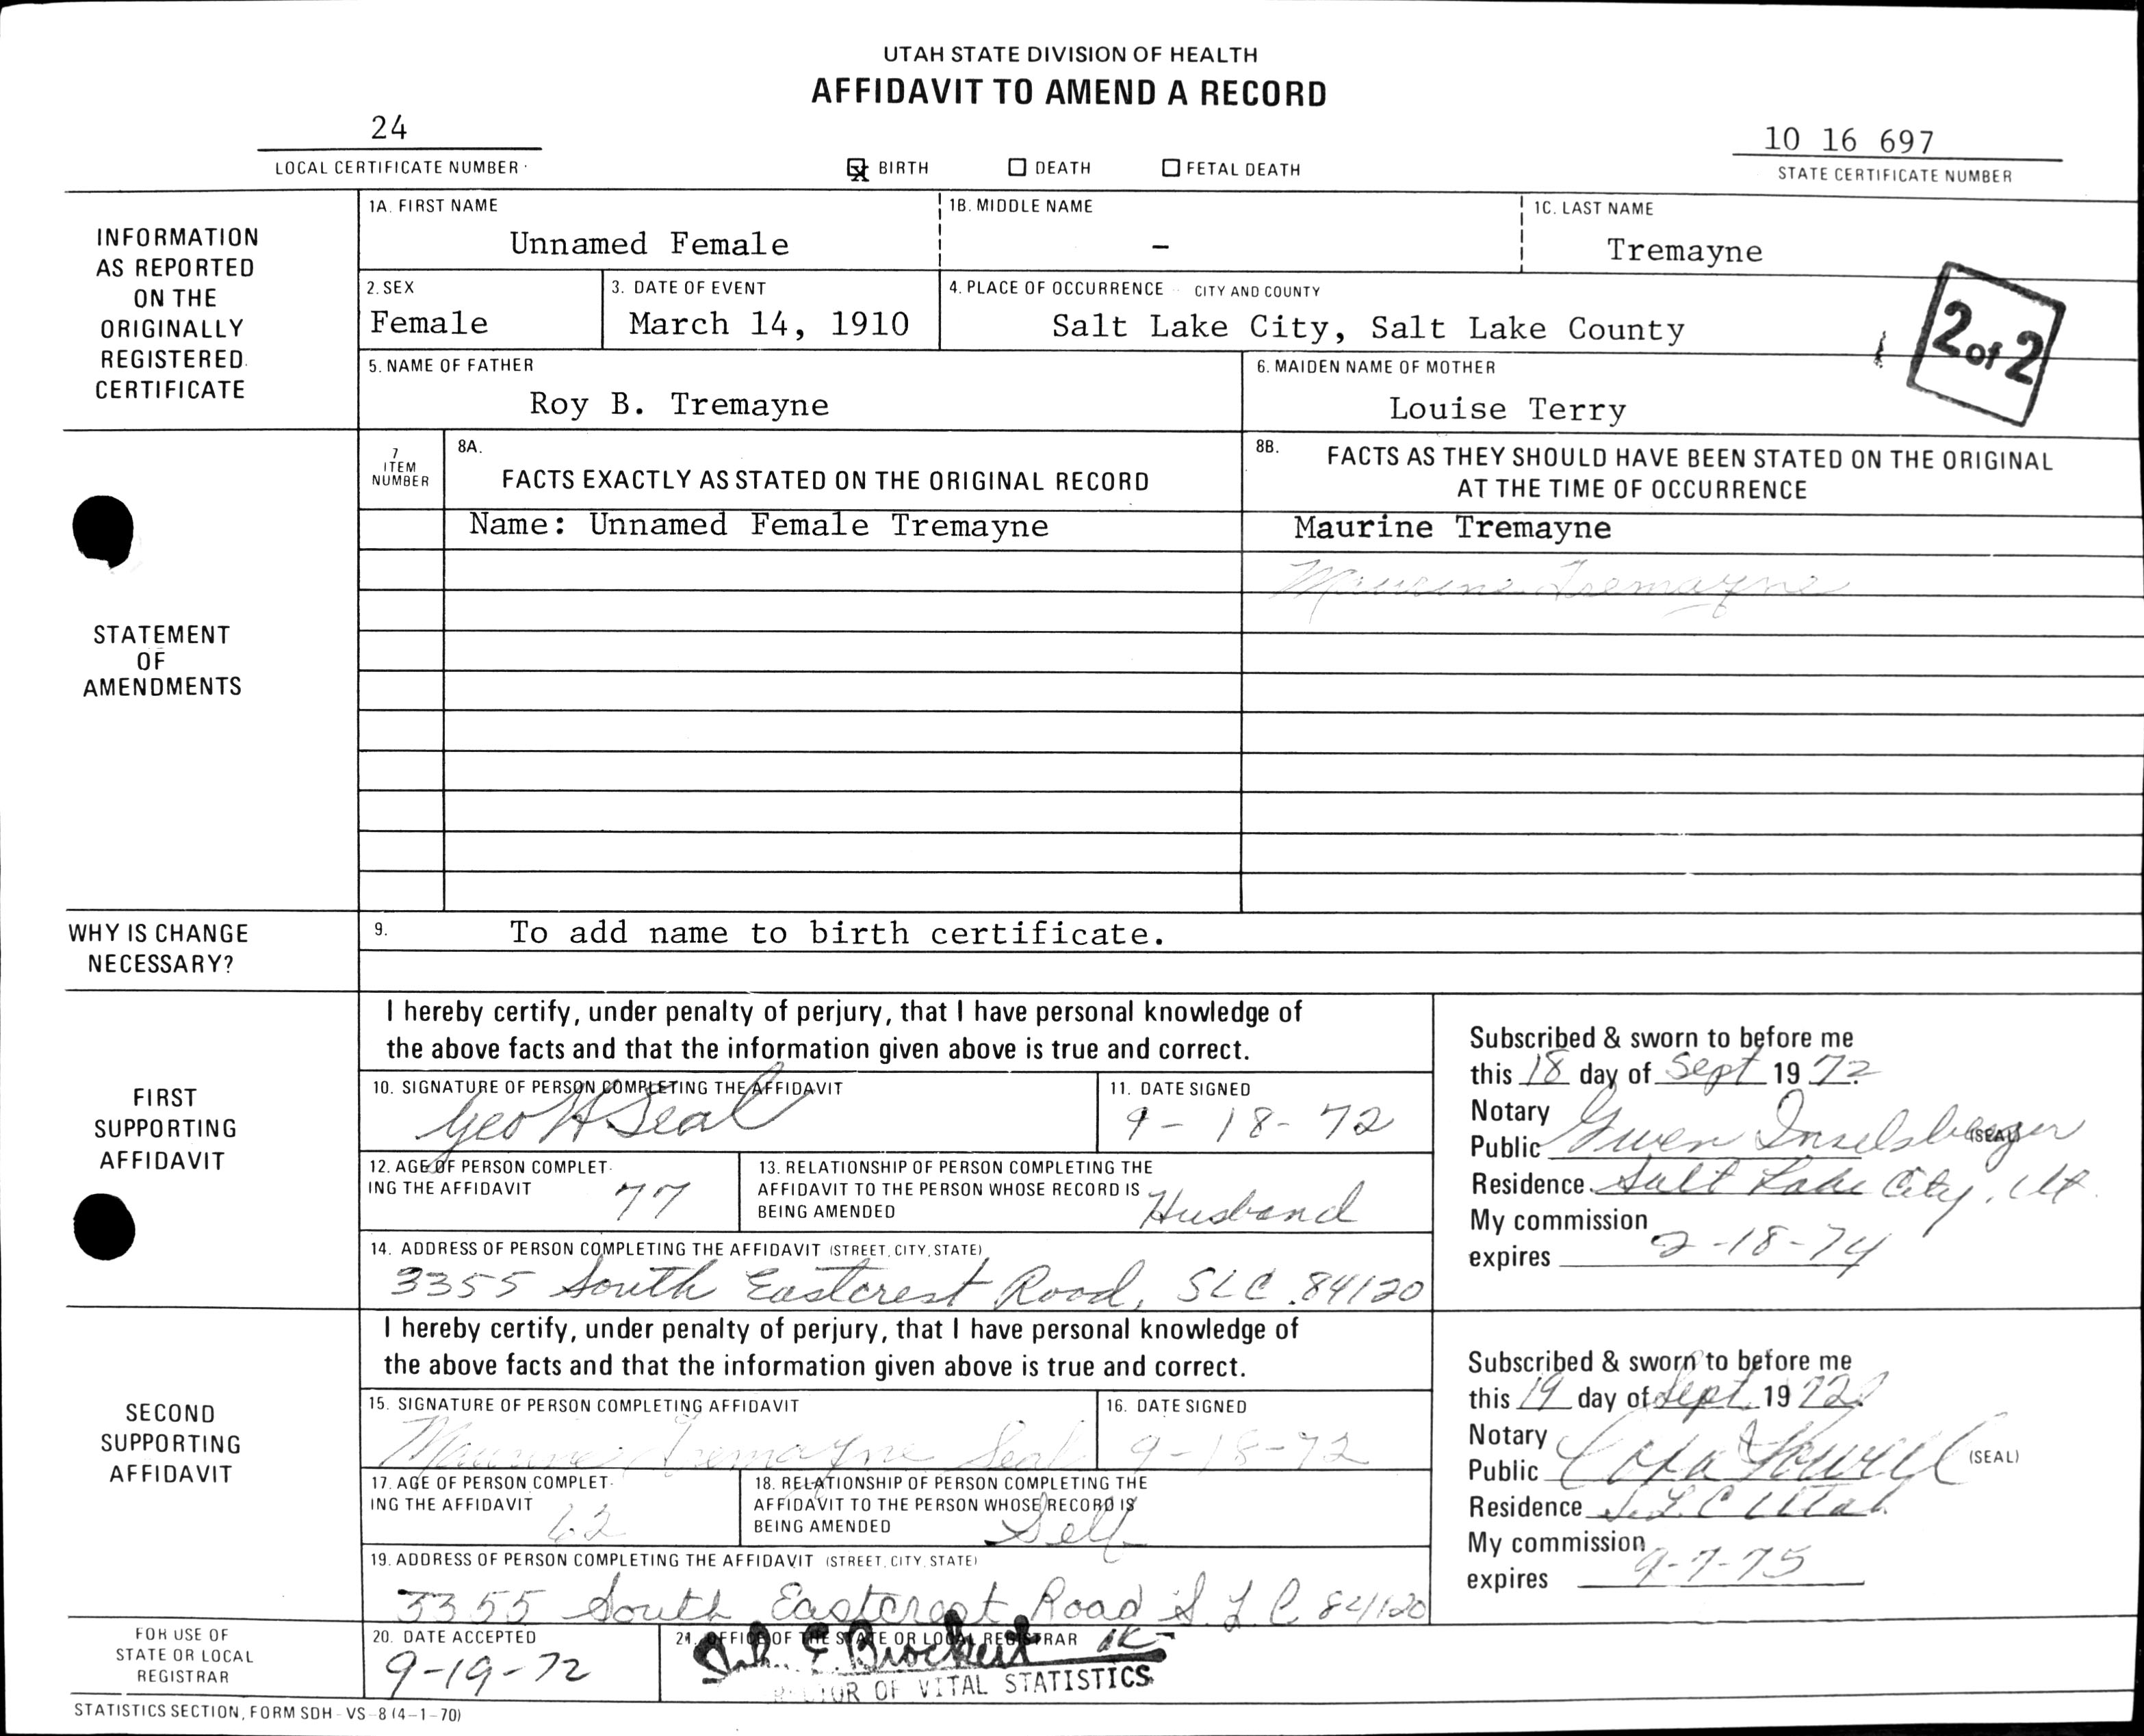 UTAH STATE DIVISION OF HEALTH
AFFIDAVIT TO AMEND A RECORD
24
10 16 697
LOCAL CERTIFICATE NUMBER
BIRTH DEATH FETAL DEATH
STATE CERTIFICATE NUMBER
INFORMATION
AS REPORTED
ON THE
ORIGINALLY
REGISTERED
CERTIFICATE
1A. FIRST NAME 1B. MIDDLE NAME 1C. LAST NAME
Unnamed Female - Tremayne
2. SEX 3. DATE OF EVENT 4. PLACE OF OCCURRENCE CITY AND COUNTY
Female March 14, 1910 Salt Lake City, Salt Lake County
2 of 2
5. NAME OF FATHER 6. MAIDEN NAME OF MOTHER
Roy B. Tremayne Louise Terry
STATEMENT
OF
AMENDMENTS
7
ITEM
NUMBER
8A.
FACTS EXACTLY AS STATED ON THE ORIGINAL RECORD
8B. FACTS AS THEY SHOULD HAVE BEEN STATED ON THE ORIGINAL
AT THE TIME OF OCCURRENCE
Name: Unnamed Female Tremayne Maurine Tremayne
Maurine Tremayne
WHY IS CHANGE
NECESSARY?
9. To add name to birth certificate.
FIRST
SUPPORTING
AFFIDAVIT
I hereby certify, under penalty of perjury, that I have personal knowledge of
the above facts and that the information given above is true and correct.
10. SIGNATURE OF PERSON COMPLETING THE AFFIDAVIT 11. DATE SIGNED
Geo H Seal 9-18-72
12. AGE OF PERSON COMPLET-
ING THE AFFIDAVIT 77
13. RELATIONSHIP OF PERSON COMPLETING THE
AFFIDAVIT TO THE PERSON WHOSE RECORD IS
BEING AMENDED Husband
14. ADDRESS OF PERSON COMPLETING THE AFFIDAVIT (STREET, CITY, STATE)
3355 South Eastcrest Road, SLC 84120
Subscribed & sworn to before me
this 18 day of Sept 19 72
Notary
Public Gwen Inselsberger (SEAL)
Residence Salt Lake City, Ut.
My commission
expires 2-18-74
SECOND
SUPPORTING
AFFIDAVIT
I hereby certify, under penalty of perjury, that I have personal knowledge of
the above facts and that the information given above is true and correct.
15. SIGNATURE OF PERSON COMPLETING AFFIDAVIT 16. DATE SIGNED
Maurine Tremayne Seal 9-18-72
17. AGE OF PERSON COMPLET-
ING THE AFFIDAVIT 62
18. RELATIONSHIP OF PERSON COMPLETING THE
AFFIDAVIT TO THE PERSON WHOSE RECORD IS
BEING AMENDED Self
19. ADDRESS OF PERSON COMPLETING THE AFFIDAVIT (STREET, CITY, STATE)
3355 South Eastcrest Road S.L.C. 84120
Subscribed & sworn to before me
this 19 day of Sept. 19 72
Notary
Public (SEAL)
Residence S.L.C Utah
My commission
expires 9-7-75
FOR USE OF
STATE OR LOCAL
REGISTRAR
20. DATE ACCEPTED
9-19-72
21. OFFICE OF THE STATE OR LOCAL REGISTRAR
Brockert
OF VITAL STATISTICS
STATISTICS SECTION, FORM SDH-VS-8 (4-1-70)